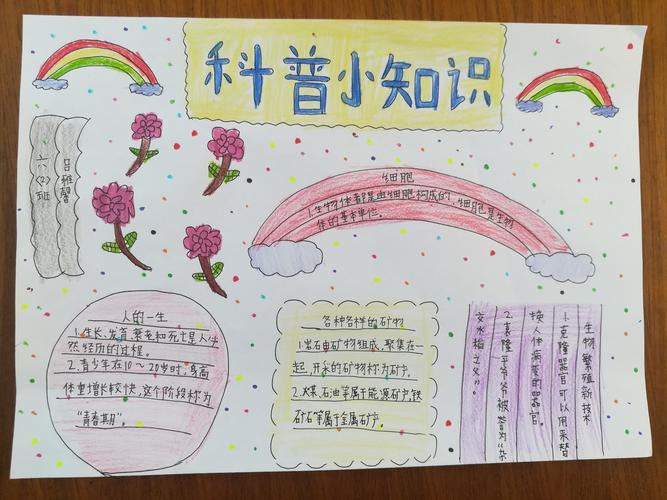 科普小知识
六(2)班
吕雅馨
细胞
1.生物体都是由细胞构成的,细胞是生物
体的基本单位。
人的一生
1.生长、发育、衰老和死亡是人生
必然经历的过程。
2.青少年在10～20岁时,身高
体重增长较快,这个阶段称为
“青春期”。
各种各样的矿物
1.岩石由矿物组成,聚集在一
起,开采的矿物称为矿产。
2.煤、石油等属于能源矿产,铁
矿石等属于金属矿产。
生物繁殖新技术
1.克隆器官可以用来替
换人体病萎的器官。
2.袁隆平爷爷被誉为“杂
交水稻之父”。